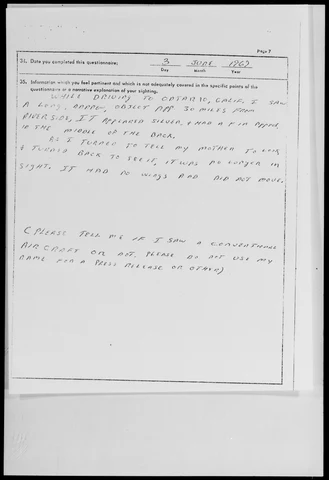 Page 7
34. Date you completed this questionnaire: 3 JUNE 1967
Day Month Year
35. Information which you feel pertinent and which is not adequately covered in the specific points of the
questionnaire or a narrative explanation of your sighting.
WHILE DRIVING TO ONTARIO, CALIF. I SAW
A LONG, OBJECT APP 30 MILES FROM
RIVERSIDE, IT APPEARED SILVER, & HAD A FIN APPEAR
IN THE MIDDLE OF THE BACK.
AS I TURNED TO TELL MY MOTHER TO LOOK
& TURNED BACK TO SEE IT, IT WAS NO LONGER IN
SIGHT. IT HAD NO WINGS AND DID NOT MOVE.
(PLEASE TELL ME IF I SAW A CONVENTIONAL
AIRCRAFT OR NOT. PLEASE DO NOT USE MY
NAME FOR A PRESS RELEASE OR OTHER)